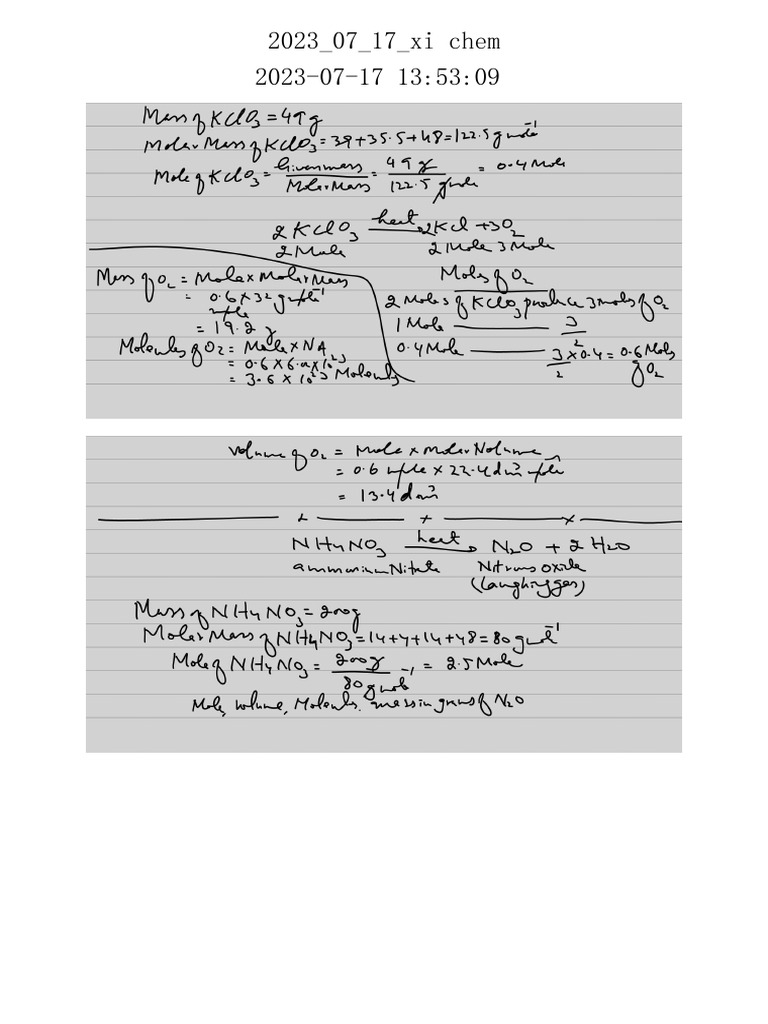 2023_07_17_xi chem
2023-07-17 13:53:09
Mass of KClO3 = 49 g
Molar Mass of KClO3 = 39+35.5+48=122.5 g mole⁻¹
Mole of KClO3 = Given mass / Molar Mass = 49 g / 122.5 g mole = 0.4 Mole
2KClO3 heat → 2KCl + 3O2
2 Mole 2 Mole 3 Mole
Mass of O2 = Mole × Molar Mass
= 0.6 × 32 g mole⁻¹
mole
= 19.2 g
Molecules of O2 = Mole × NA
= 0.6 × 6.02 × 10²³
= 3.6 × 10²³ Molecules
Moles of O2
2 Moles of KClO3 produce 3 moles of O2
1 Mole 3/2
0.4 Mole 3/2 × 0.4 = 0.6 Moles
of O2
Volume of O2 = Mole × Molar Volume
= 0.6 mole × 22.4 dm³ mole⁻¹
= 13.4 dm³
× × ×
NH4NO3 heat → N2O + 2H2O
ammonium Nitrate Nitrous Oxide
(laughing gas)
Mass of NH4NO3 = 200g
Molar Mass of NH4NO3 = 14+4+14+48=80 g mol⁻¹
Mole of NH4NO3 = 200g / 80 g mole⁻¹ = 2.5 Mole
Mole, volume, Molecules, mass in grams of N2O